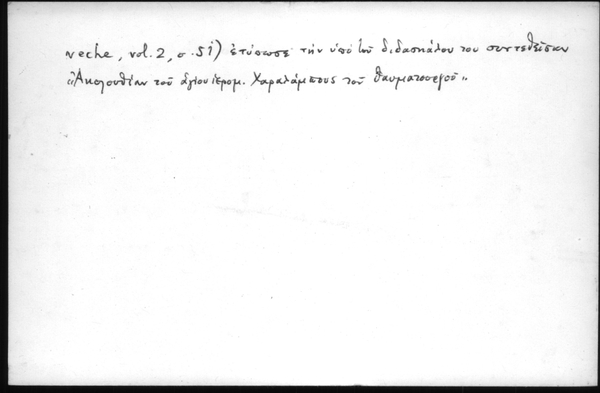 veche, vol. 2, σ. 51) ἐτύπωσε τὴν ὑπὸ τοῦ διδασκάλου του συντεθεῖσαν
«Ἀκολουθίαν τοῦ ἁγίου ἱερομ. Χαραλάμπους τοῦ θαυματουργοῦ»